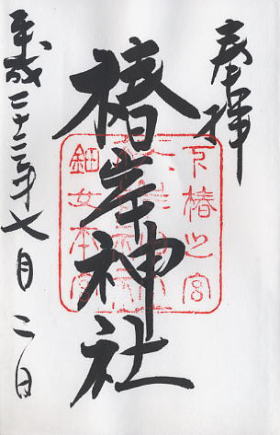 奉拝
椿岸神社
下椿之宮
鈿女本宮
平成二十三年七月二日